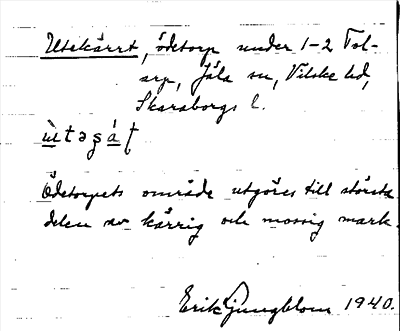 Utekärret, ödetorp under 1-2 Tol-
arp, Jäla sn, Vilske hd,
Skaraborgs l.
Ödetorpets område utgöres till största
delen av kärrig och mossig mark.
Erik Ljungblom 1940.